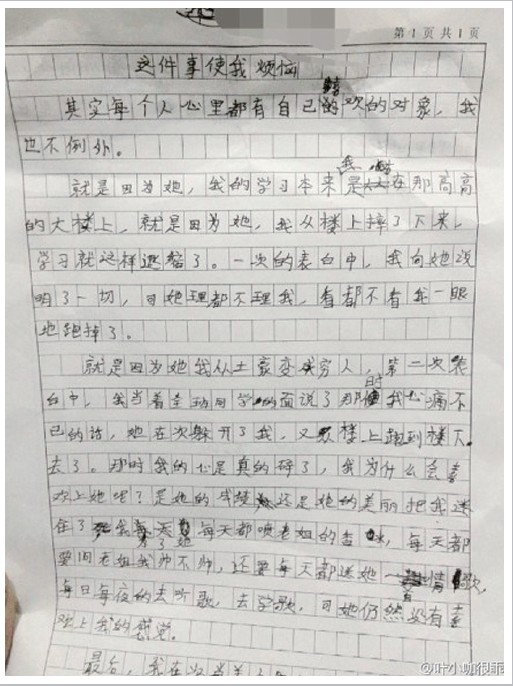 第1页共1页
这件事使我烦恼
其实每个人心里都有自己的欢的对象，我
也不例外。
就是因为她，我的学习本来是在那高高
的大楼上，就是因为她，我从楼上摔了下来，
学习就这样退
了。一次的表白中，我向她说
明了一切，可她理都不理我，看都不看我一眼
地跑掉了。
就是因为她我从土豪变成穷人，第二次表
白中，我当着全班同学的面说了那时我心痛不
已的话，她在次躲开了我，又
楼上跑到楼下
去了。那时我的心是真的碎了，我为什么会喜
欢上她呢？是她的成绩还是她的美丽把我迷
住了
每天都喷老姐的香水，每天都
要问老姐我帅不帅，还要每天都送她一
情歌，
每日每夜的去听歌，去学歌，可她仍然没有喜
欢上我的感觉。
最后，我在
@叶小咖很乖